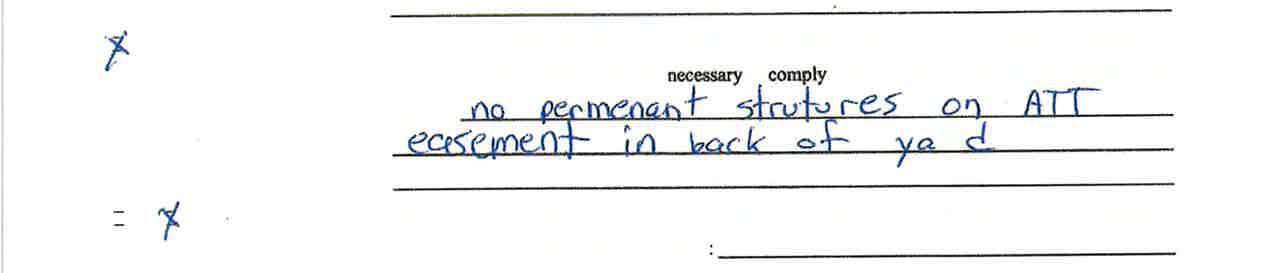 necessary comply
no permenant strutures on ATT
easement in back of ya d
= x
: